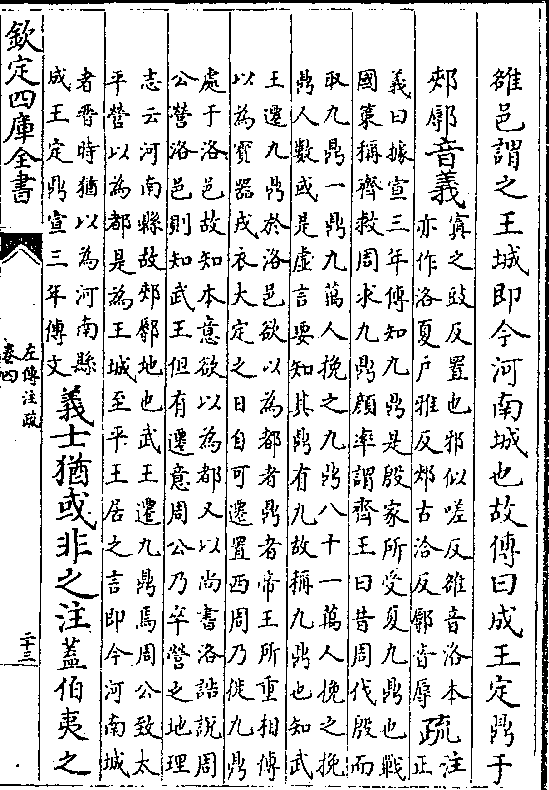 雒邑謂之王城即今河南城也故傳曰成王定鼎于
郟鄏音義
寘之豉反置也邪似嗟反雒音洛本
亦作洛夏户雅反郟古洽反鄏音辱
疏
注
正
義曰據宣三年傳知九鼎是殷家所受夏九鼎也戰
國策稱齊救周求九鼎顔率謂齊王曰昔周伐殷而
取九鼎一鼎九萬人挽之九鼎八十一萬人挽之挽
鼎人數或是虛言要知其鼎有九故稱九鼎也知武
王遷九鼎於洛邑欲以為都者鼎者帝王所重相傳
以為寳器戎衣大定之日自可遷置西周乃徙九鼎
處于洛邑故知本意欲以為都又以尚書洛誥說周
公營洛邑則知武王但有遷意周公乃卒營之地理
志云河南縣故郟鄏地也武王遷九鼎焉周公致太
平營以為都是為王城至平王居之言即今河南城
者晋時猶以為河南縣
成王定鼎宣三年傳文
義士猶或非之注蓋伯夷之
欽定四庫全書
左傳注疏
卷四
二十三